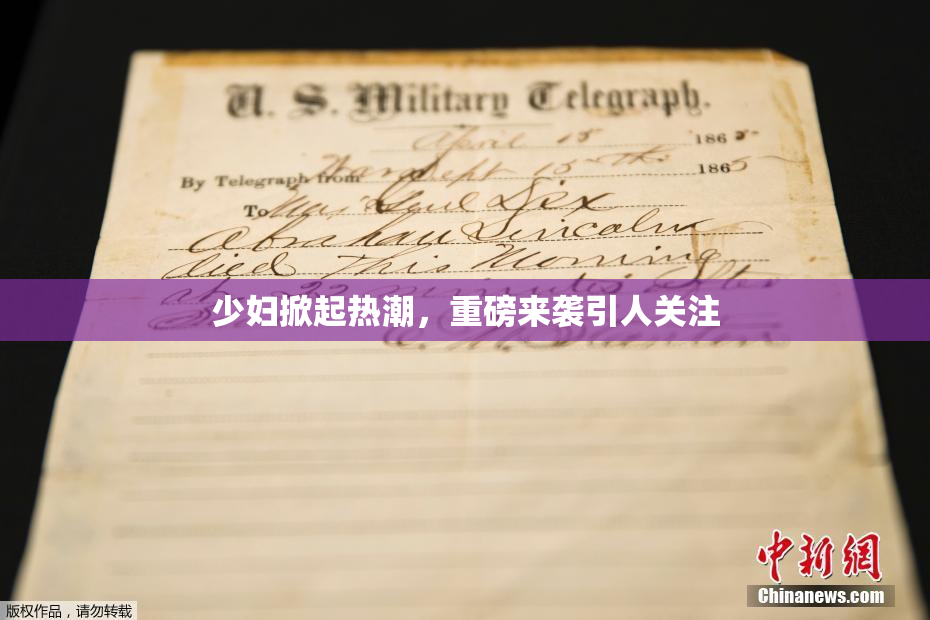 U. S. Military Telegraph.
April 15 1865
By Telegraph from War Dept 15th 1865
To Maj Genl Dix
Abraham Lincoln
died This Morning
at 22 minutes after
少妇掀起热潮，重磅来袭引人关注
E. M. Stanton
中新网
Chinanews.com
版权作品，请勿转载